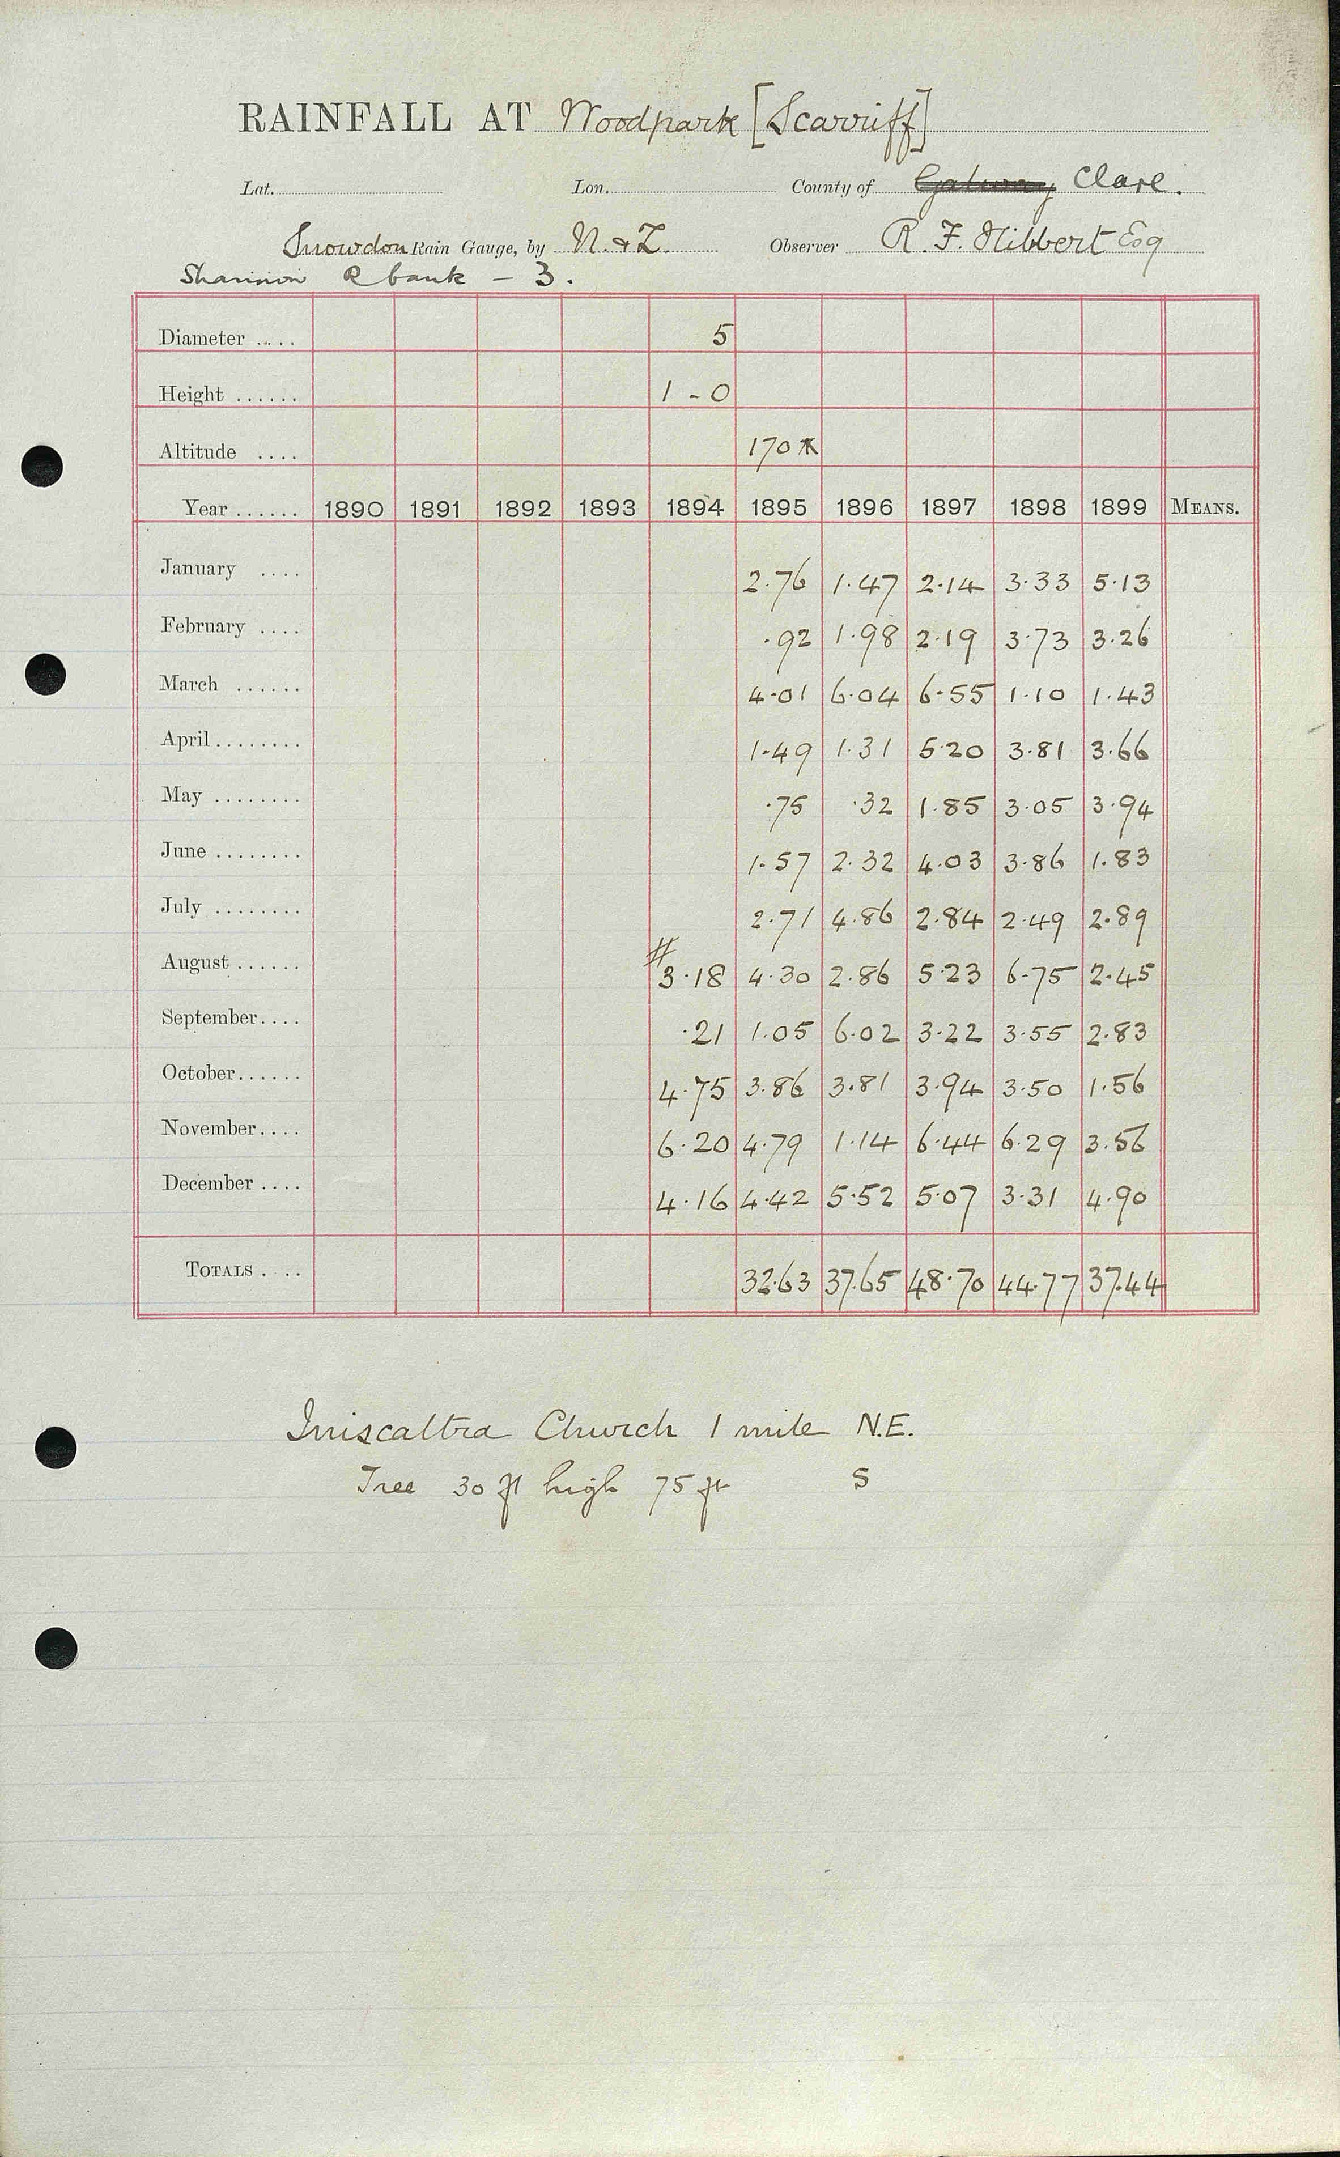 RAINFALL AT Woodpark [Scarriff]
Lat. Lon. County of Galway Clare.
Snowdon Rain Gauge, by N. & Z. Observer R. F. Hibbert Esq
Shannon R bank - 3.
Diameter ..... 5
Height ...... 1 - 0
Altitude .... 170
Year ...... 1890 1891 1892 1893 1894 1895 1896 1897 1898 1899 MEANS.
January .... 2.76 1.47 2.14 3.33 5.13
February .... .92 1.98 2.19 3.73 3.26
March ...... 4.01 6.04 6.55 1.10 1.43
April ........ 1.49 1.31 5.20 3.81 3.66
May ........ .75 .32 1.85 3.05 3.94
June ........ 1.57 2.32 4.03 3.86 1.83
July ........ 2.71 4.86 2.84 2.49 2.89
August ...... # 3.18 4.30 2.86 5.23 6.75 2.45
September .... .21 1.05 6.02 3.22 3.55 2.83
October ...... 4.75 3.86 3.81 3.94 3.50 1.56
November .... 6.20 4.79 1.14 6.44 6.29 3.56
December .... 4.16 4.42 5.52 5.07 3.31 4.90
TOTALS .... 32.63 37.65 48.70 44.77 37.44
Iniscaltra Church 1 mile N.E.
Tree 30 ft high 75 ft S